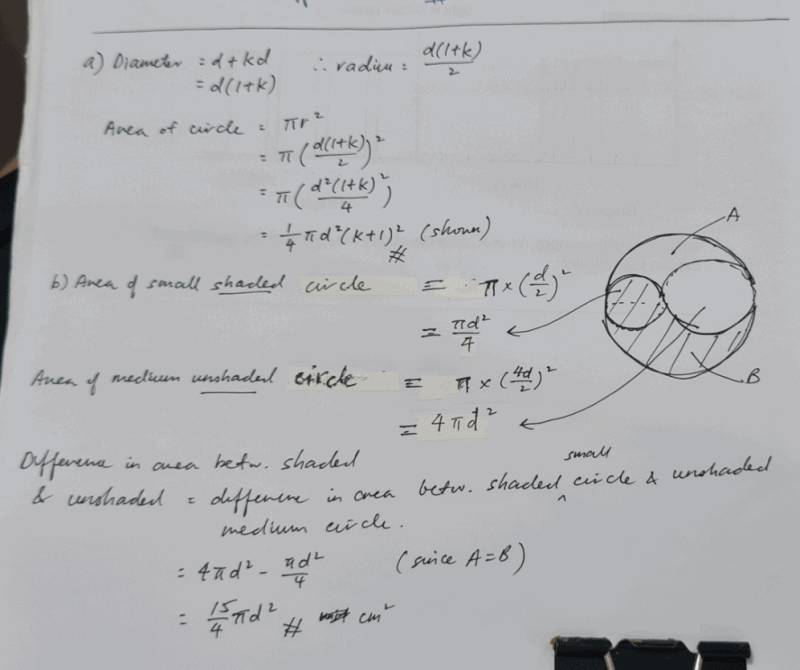 a) Diameter = d + kd ∴ radius = d(1+k)/2
= d(1+k)
Area of circle = πr²
= π(d(1+k)/2)²
= π(d²(1+k)²/4)
= 1/4 πd²(k+1)² (shown)
#
b) Area of small shaded circle = π × (d/2)²
= πd²/4
Area of medium unshaded circle = π × (4d/2)²
= 4πd²
A
B
Difference in area betw. shaded
& unshaded = difference in area betw. shaded ^ small circle & unshaded
medium circle.
= 4πd² - πd²/4 (since A=B)
= 15/4 πd² # cm²